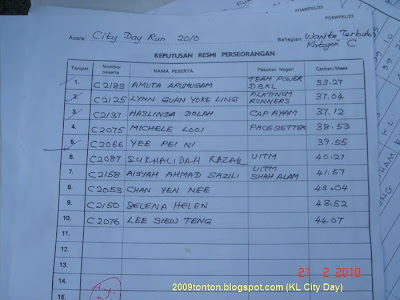 Acara: City Day Run 2010
Bahagian: Wanita Terbuka
Kategori C
KEPUTUSAN RESMI PERSEORANGAN
Tempat Nombor Peserta NAMA PESERTA Pasukan Negeri Catatan/Masa
1. C2183 AMUTA ARUMUGAM TEAM POWER DBKL 33.27
2. C2125 LYNN GUAN YOKE LING PLATINUM RUNNERS 37.04
3. C2137 HASLINDA DOLAH CAP AYAM 37.12
4. C2075 MICHELE LOOI PACESETTER 38.53
5. C2066 YEE PEI NI 39.55
6. C2087 SUKHALIDAH RAZAB UITM 40.27
7. C2158 AISYAH AHMAD SAZILI UITM SHAH ALAM 41.57
8. C2053 CHAN YEN NEE 43.04
9. C2150 SELENA HELEN 43.52
10. C2076 LEE SIEW TENG 44.07
11.
12.
13.
14.
15.
21 2 2010
2009tonton.blogspot.com (KL City Day)